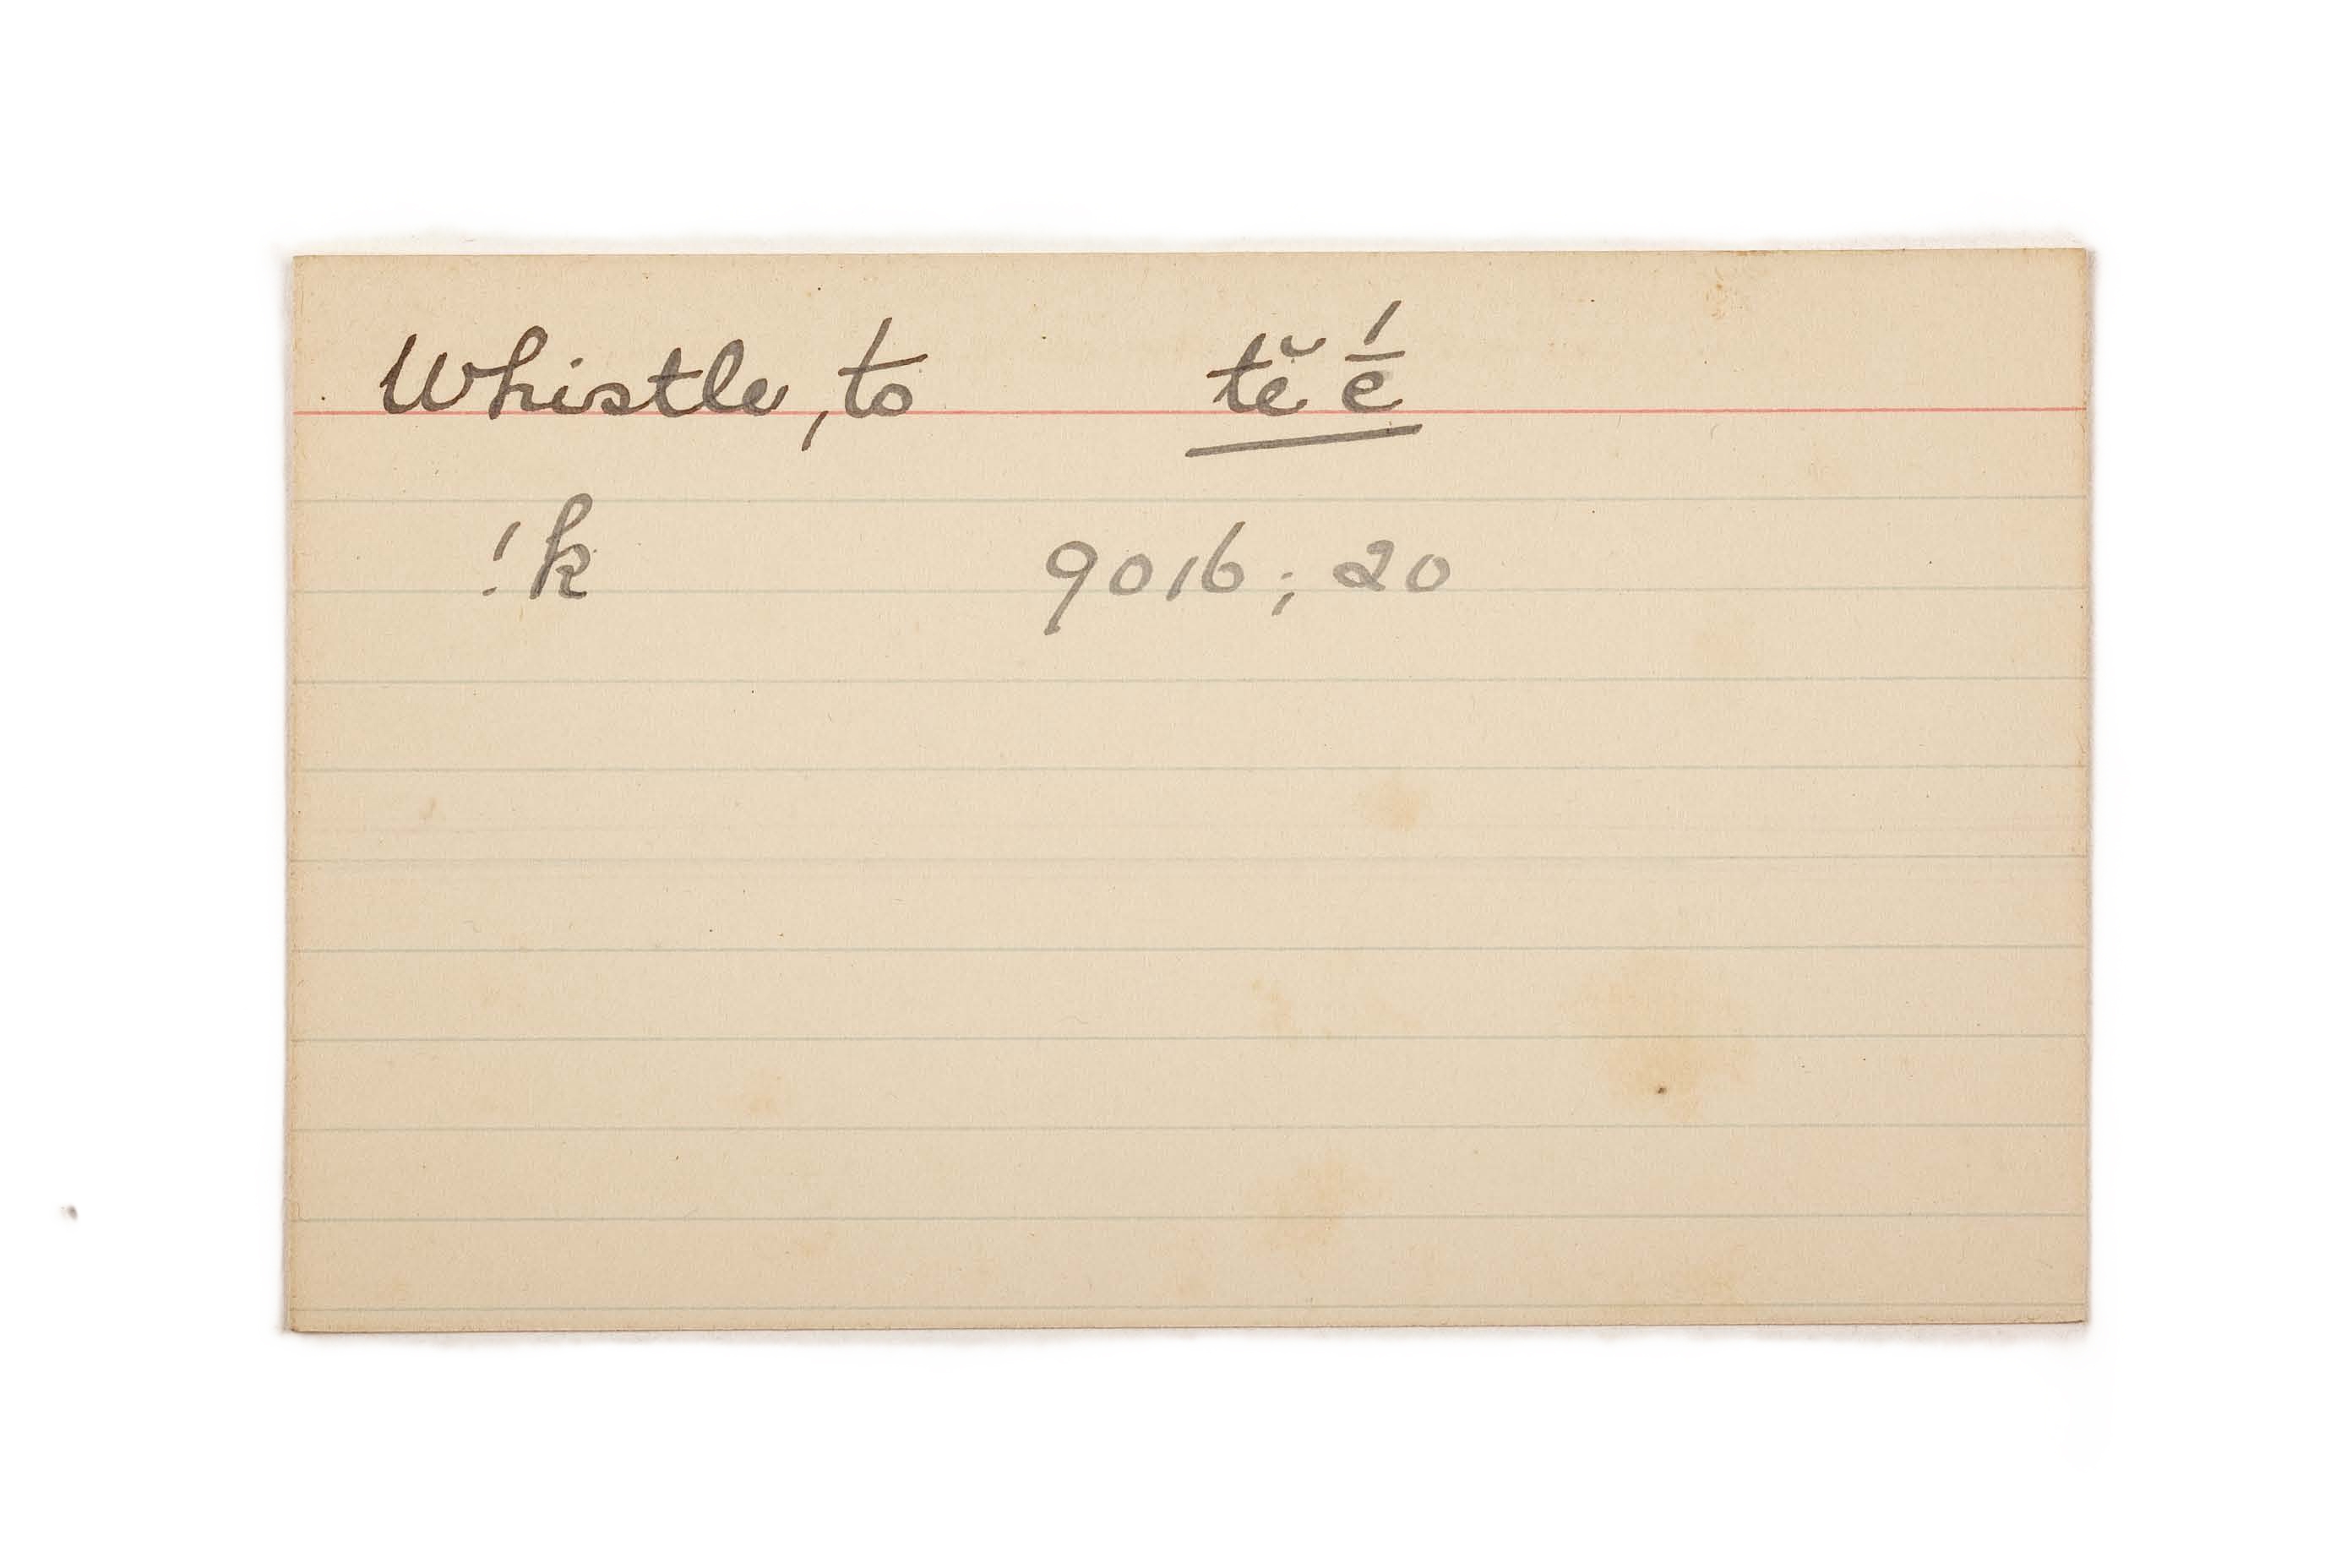 Whistle, to tĕ ḗ
!k 9016; 20